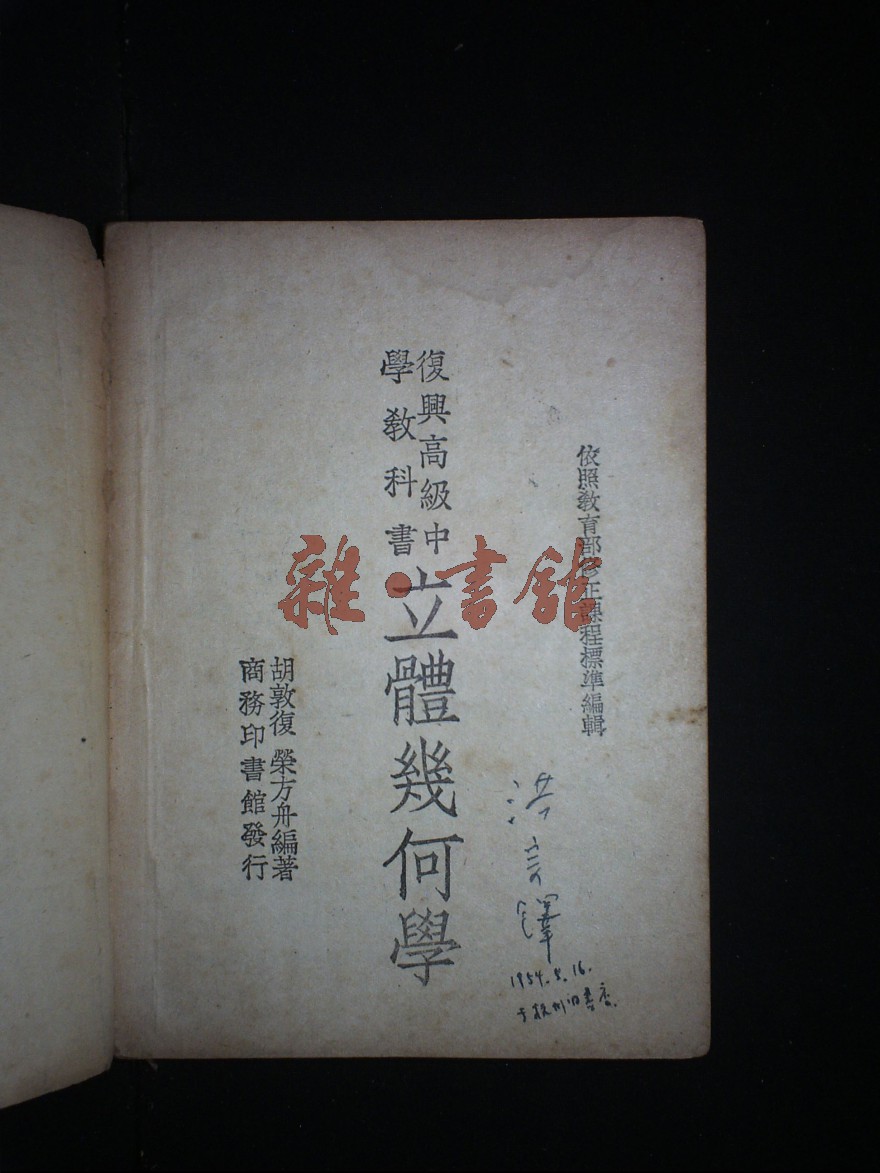 依照教育部修正課程標準編輯
復興高級中
學教科書
立體幾何學
胡敦復 榮方舟編著
商務印書館發行
雜·書館
1954.5.16.
于杭州旧書店